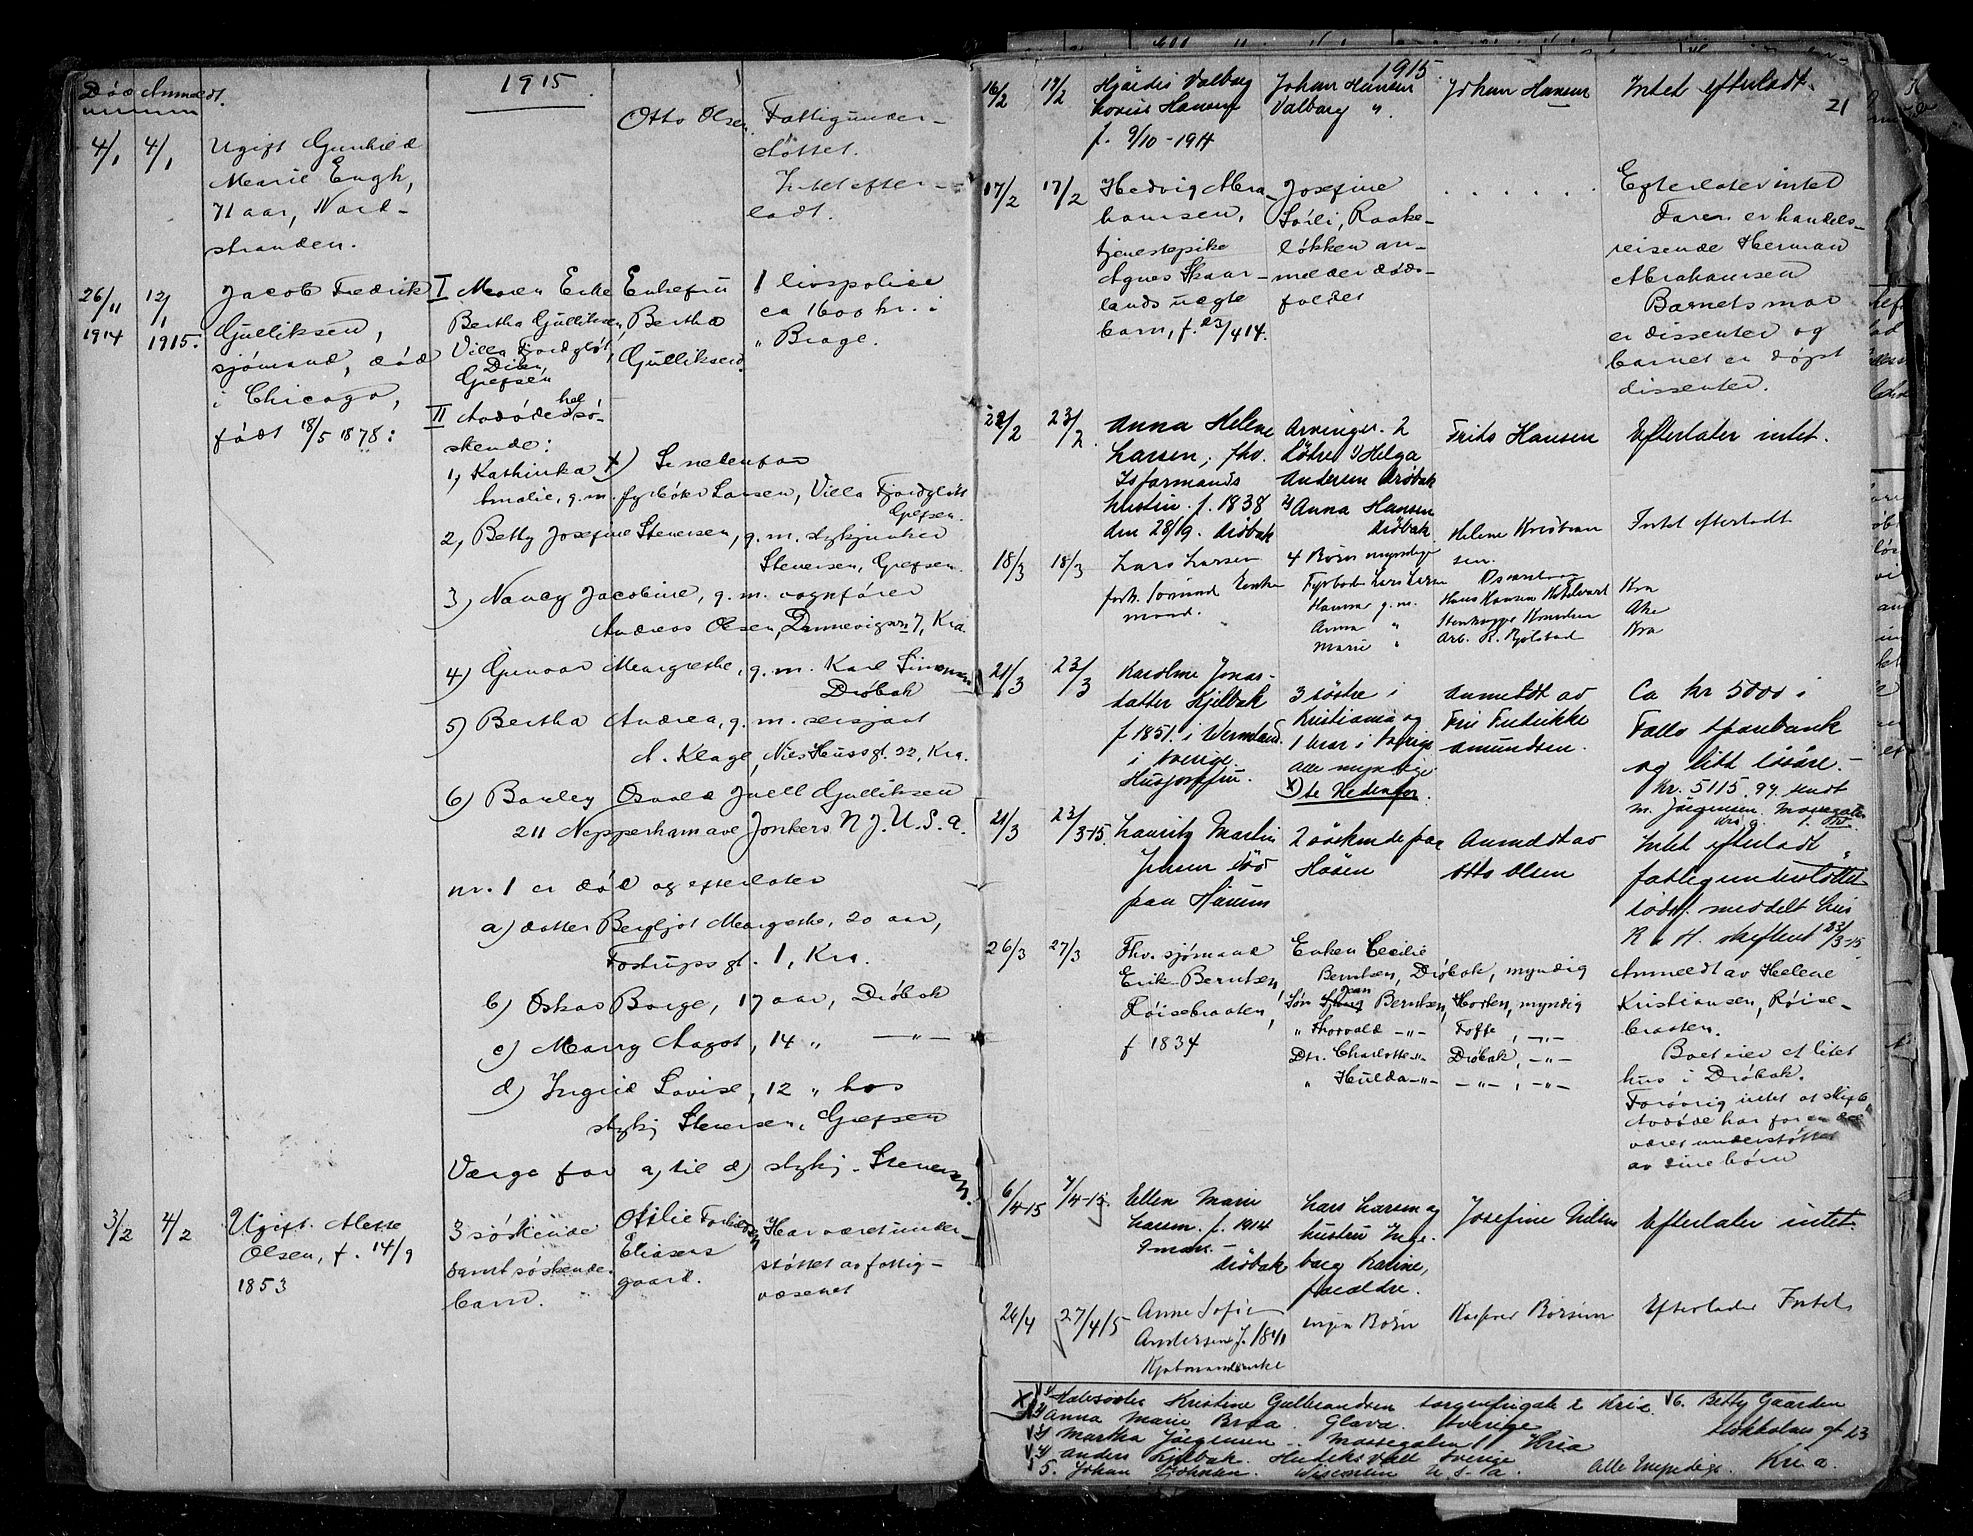 1915
Død Anmeldt.
4/1 4/1 Ugift Gunhild
Marie Engh,
71 aar, Nord-
stranden.
Otto Olsen
Fattigunder-
støttet.
Intet efter-
ladt.
26/11 1914 12/1 1915.
Jacob Fredrik
Gulliksen,
sjømand, død
i Chicago,
født 18/5 1878:
I Moren Enke
Bertha Gulliksen,
Villa Fjordgløt,
Grefsen
Enkefru
Bertha
Gulliksen
1 livspolice
ca 1600 kr. i
"Brage.
II Avdødes hel sø-
skende:
1, Kathinka x) Se nedenfor
Amalie, g. m. fyrbøter Larsen, Villa Fjordgløtt
Grefsen.
2, Betty Josefine Stenersen, g. m. stykjunker
Stenersen, Grefsen.
3) Nancy Jacobine, g. m. vognfører
Andreas Olsen, Dannevigsvn 7, Kra.
4) Gunvor Margrethe, g. m. Karl Simonsen
Drøbak
5) Bertha Andrea, g. m. sersjant
A. Klage, Niels Huusgt. 22, Kra.
6) Borley Osvald Juell Gulliksen
211 Nepperham ave Jonkers N J. U. S. A.
nr. 1 er død og efterlater
a) datter Bergljot Margrethe, 20 aar,
Fostrupsgt. 1, Kra.
b) Oskar Borge, 17 aar, Drøbak
c) Marry Aagot, 14 " —"—
d) Ingrid Lovise, 12 " hos
stykj Stenersen, Grefsen
Værge for a) til d) stykj. Stenersen.
3/2 4/2 Ugift. Alette
Olsen, f. 14/9
1853
3 søskende
samt søskende-
barn.
Otilie Torkildsen
Eliasens
gaard.
Har været under-
støttet av fattig-
væsenet
1915.
21
16/2 17/2 Hjørdis Valborg
Lovise Hansen
f. 9/10-1914
Johan Hansen
Valborg "
Johan Hansen
Intet efterladt.
17/2 17/2 Hedvig Abra-
hamsen,
tjenestepike
Agnes Skaar-
lands uægte
barn, f. 23/4 14.
Josefine
Sørli, Raake-
løkken an-
melder døds-
faldet
Efterlater intet
Faren er handels-
reisende Herman
Abrahamsen
Barnets mor
er dissenter og
barnet er døpt
dissenter.
22/2 23/2 Anna Helene
Larsen, fhv.
Isformands
hustru. f. 1838
den 28/9. Drøbak
Arvinger. 2
døtre 1) Helga
Andersen Drøbak
2) Anna Hansen
Drøbak
Frits Hansen
Efterlater intet.
18/3 18/3 Lars Larsen
forh. sømand Enke
mand.
4 Børn myndige
Fyrbøder Lars Larsen
Hanna g. m.
Anna "
Marie "
Helene Kristian
sen.
Hans Hansen
Arb. R. Bjølstad
Intet efterladt
Kra
Ake
Kra
21/3 23/3 Karoline Jonas-
datter Kjelbak
f 1851. i Vermland
i Sverige.
Husjomfru.
3 søstre i
Kristiania og
1 bror i Sverige
Alle myndige
x) Se Nedenfor.
Anmeldt av
Fru Fredrikke
Amundsen.
Ca kr 5000 i
Follo Sparebank
og litt løsøre.-
Kr. 5115.97 sendt
m. Jørgensen. Mossegaten
21/3 23/3-15. Lauritz Martin
Jensen død
paa Haven
2 søskende paa
Haaen
Anmeldt av
Otto Olsen
Intet efterladt
fattigunderstøttet
dødsf. meddelt hus
R & H. skifteret 23/3-15
26/3 27/3 Fhv. sjømand
Erik Berntsen,
Røisebraaten,
f 1834
Enken Cecilie
Berntsen, Drøbak, myndig
Søn Johan Berntsen, Horten, myndig
" Thorvald -"- Toffe, -"-
Dtr. Charlotte -"- Drøbak, -"-
" Hulda -"- -"-, -"-
Anmeldt av Helene
Kristiansen, Røise-
braaten.
Boet eier et litet
hus i Drøbak.
Forøvrig intet at skifte
Avdøde har for en del
været understøttet
av sine børn
6/4-15 7/4-15. Ellen Marie
Larsen. f. 1914
9 mdr. -
Drøbak
Lars Larsen og
hustru Inge-
borg Karine,
forældre.
Josefine Nilsen
Efterlater intet
26/4 27/4 15 Anne Sofie
Andersen f. 1841
Kjøbmandsenke
ingen Børn
Kasper Børsum
Efterlader Intet
x 1) Halvsøster Kristine Gulbrandsen Sorgenfrigate 2 Kria
2) Anna Marie Braa. Glava. Sverige
3) Martha Jørgensen .. Mossegaten 1 Kria
4) Anders Kjelbak. Hudiksvall Sverige
5. Johan Johnsen. Wisconsin U. S. A. Alle Myndige.
6. Betty Gaarden
Stokholms gt 23
Kr a.